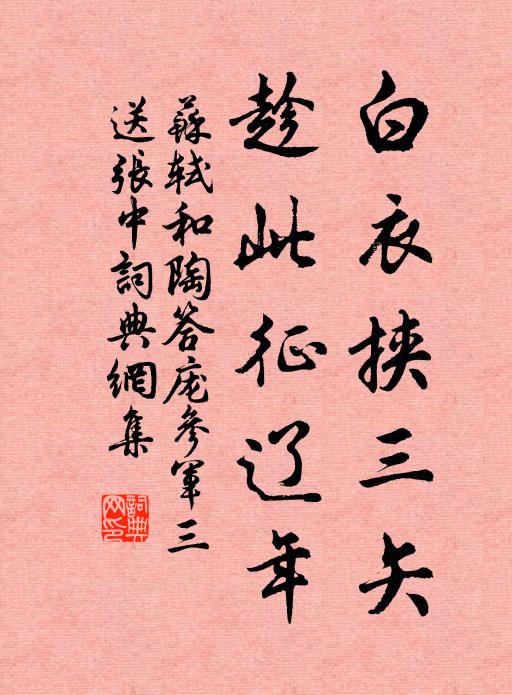 白衣挟三矢
趁此征辽年
蘇軾和陶答庞參军三
送張中詞典網集
詞典
网印